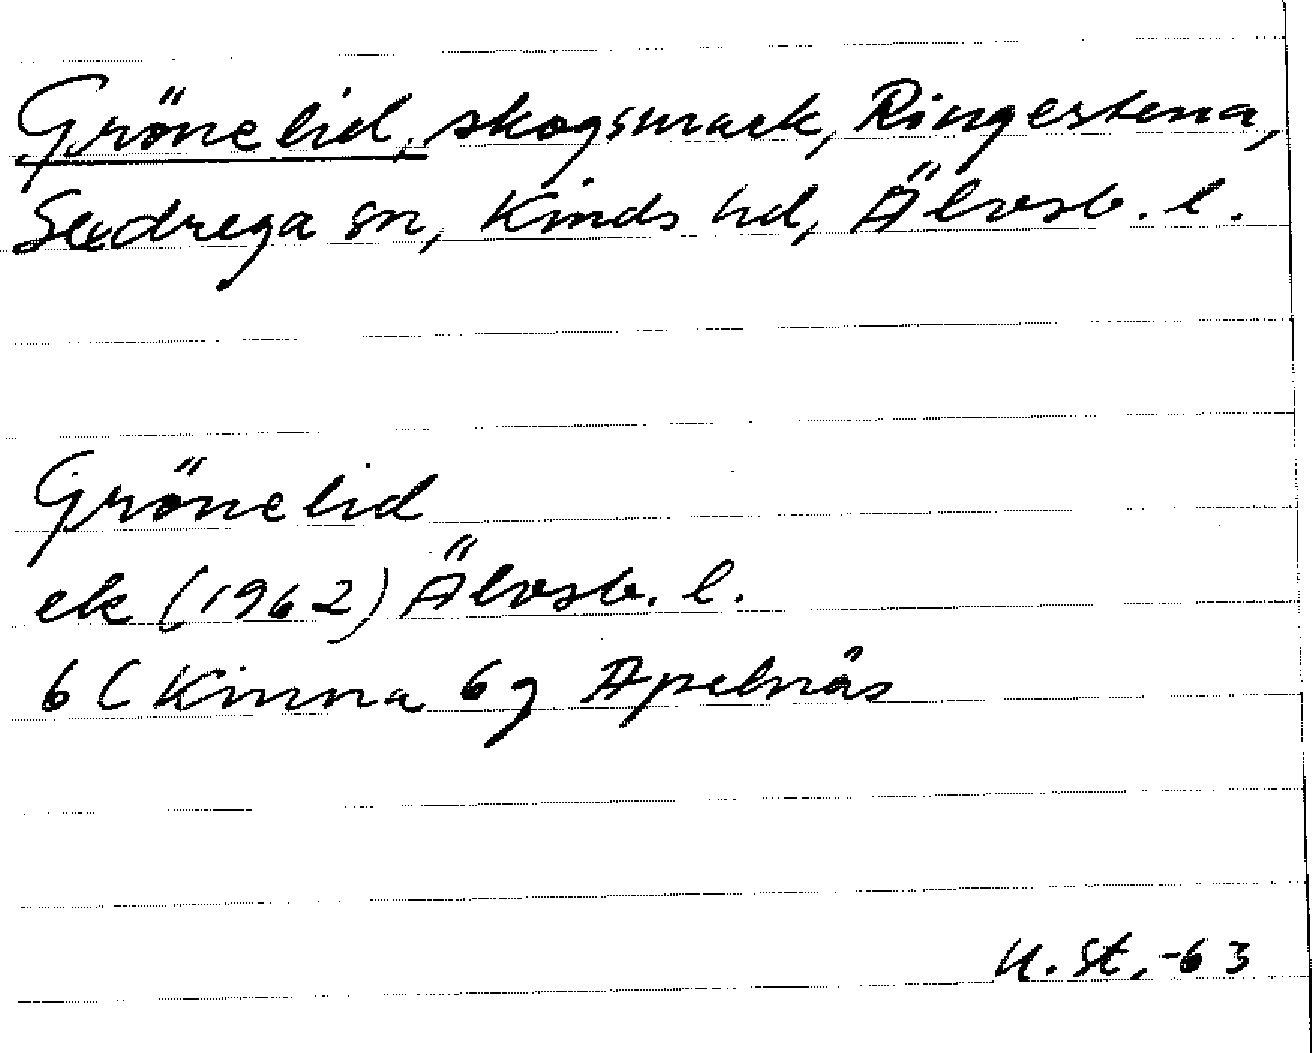 Grönelid, skogsmark, Ringestena,
Sexdrega sn, Kinds hd, Älvsb. l.
Grönelid
ek (1962) Älvsb. l.
6 C Kinna 6g Apelnäs
U. St. -63